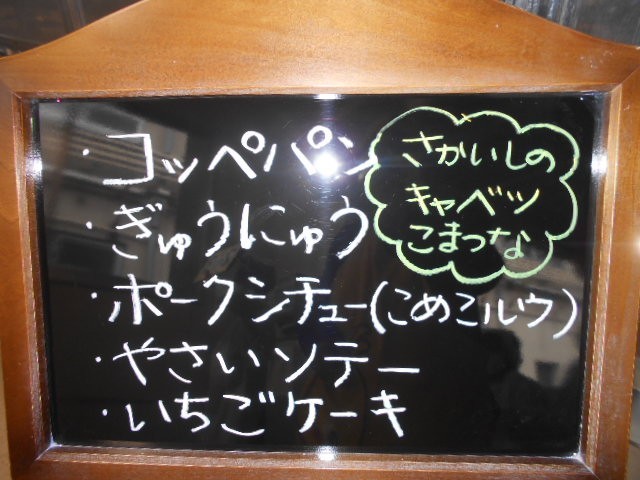 ・コッペパン
・ぎゅうにゅう
・ポークシチュー(こめこルウ)
・やさいソテー
・いちごケーキ
さかいしの
キャベツ
こまつな